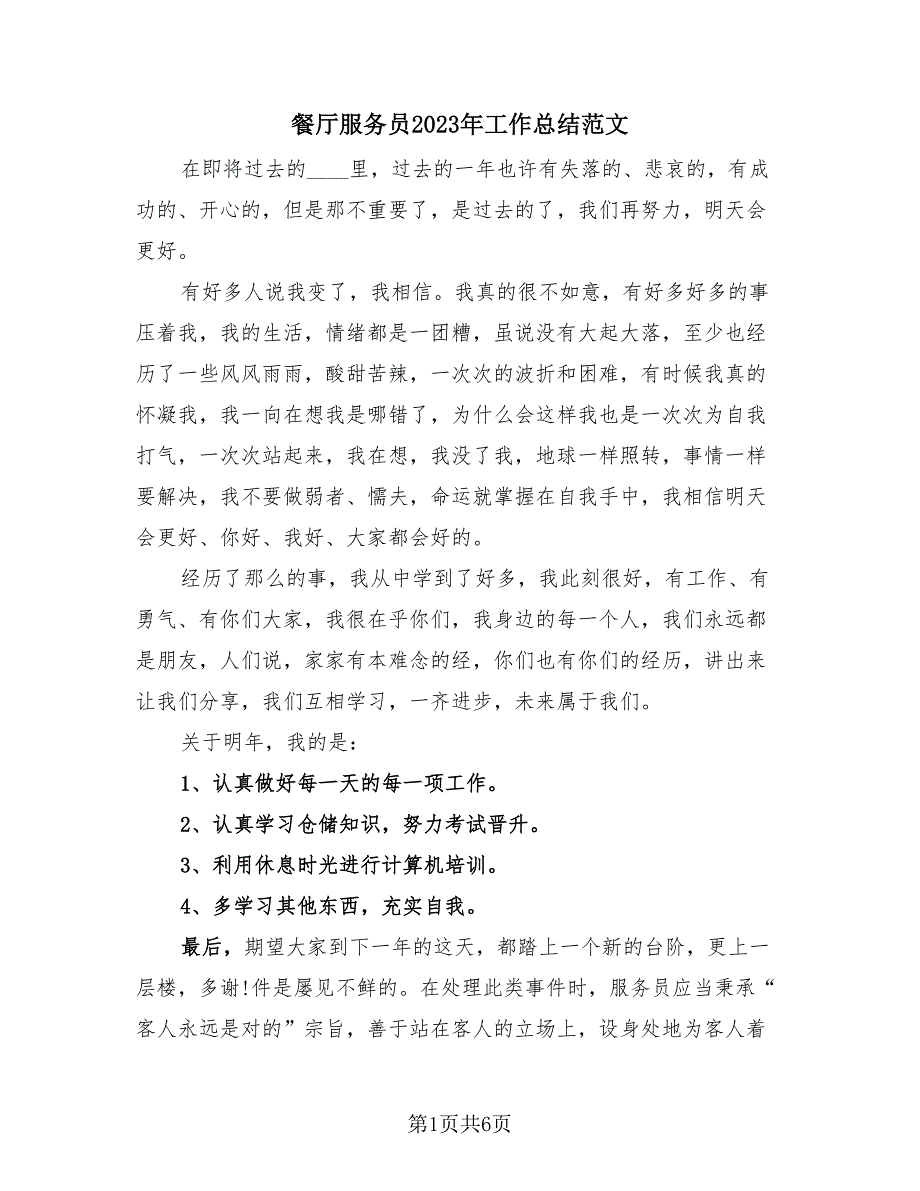 餐厅服务员2023年工作总结范文
在即将过去的____里，过去的一年也许有失落的、悲哀的，有成
功的、开心的，但是那不重要了，是过去的了，我们再努力，明天会
更好。
有好多人说我变了，我相信。我真的很不如意，有好多好多的事
压着我，我的生活，情绪都是一团糟，虽说没有大起大落，至少也经
历了一些风风雨雨，酸甜苦辣，一次次的波折和困难，有时候我真的
怀凝我，我一向在想我是哪错了，为什么会这样我也是一次次为自我
打气，一次次站起来，我在想，我没了我，地球一样照转，事情一样
要解决，我不要做弱者、懦夫，命运就掌握在自我手中，我相信明天
会更好、你好、我好、大家都会好的。
经历了那么的事，我从中学到了好多，我此刻很好，有工作、有
勇气、有你们大家，我很在乎你们，我身边的每一个人，我们永远都
是朋友，人们说，家家有本难念的经，你们也有你们的经历，讲出来
让我们分享，我们互相学习，一齐进步，未来属于我们。
关于明年，我的是：
1、认真做好每一天的每一项工作。
2、认真学习仓储知识，努力考试晋升。
3、利用休息时光进行计算机培训。
4、多学习其他东西，充实自我。
最后，期望大家到下一年的这天，都踏上一个新的台阶，更上一
层楼，多谢!件是屡见不鲜的。在处理此类事件时，服务员应当秉承“
客人永远是对的”宗旨，善于站在客人的立场上，设身处地为客人着
第1页共6页